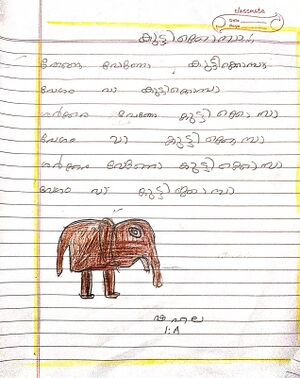 classmate
Date
Page
കുട്ടിക്കൊമ്പാ..
തേങ്ങ വേണോ കുട്ടിക്കൊമ്പാ
വേഗം വാ കുട്ടിക്കൊമ്പാ
ശർക്കര വേണോ കുട്ടിക്കൊമ്പാ
വേഗം വാ കുട്ടിക്കൊമ്പാ
ശർക്കര വേണോ കുട്ടിക്കൊമ്പാ
വേഗം വാ കുട്ടിക്കൊമ്പാ
1:A